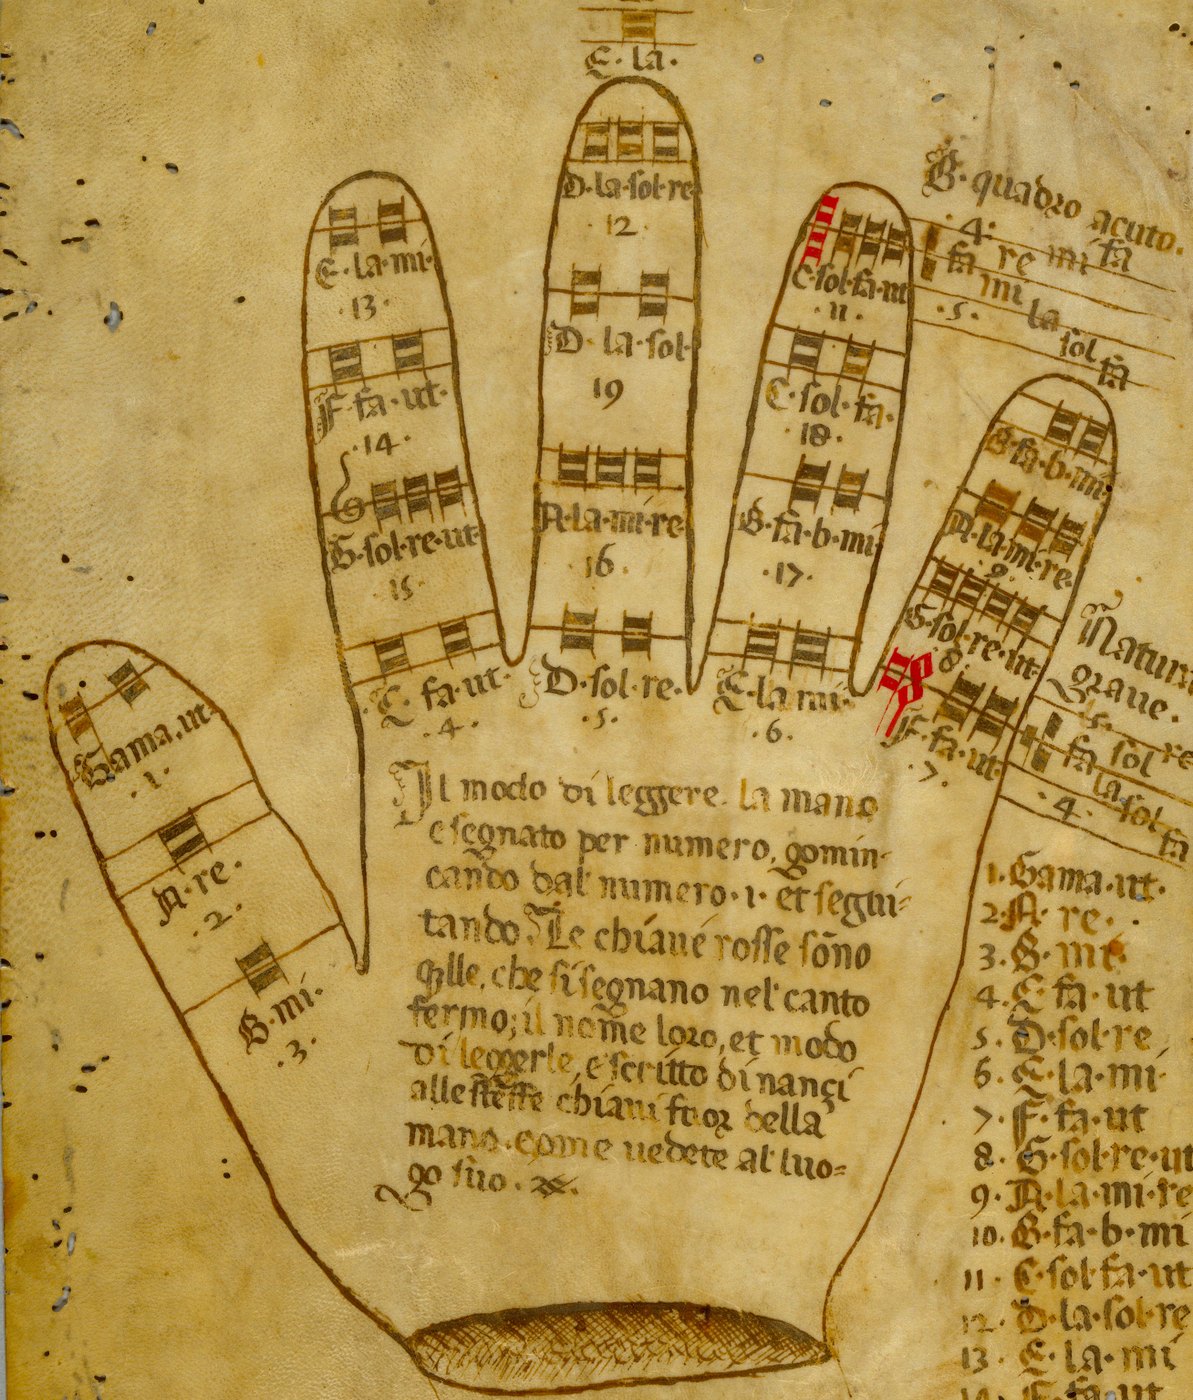 E·la·
D·la·sol·re
·12·
D·la·sol·
19
A·la·mi·re·
16·
D·sol·re·
·5·
E·la·mi·
·13·
F·fa·ut·
·14·
G·sol·re·ut·
15·
C·fa·ut·
·4·
C·sol·fa·ut
·11·
C·sol·fa·
·18·
B·fa·b·mi·
·17·
E·la·mi·
·6·
B·fa·b·mi·
A·la·mi·re·
·9·
G·sol·re·ut·
·8·
F·fa·ut·
·7·
Gama·ut·
·1·
A·re·
·2·
B·mi·
·3·
B·quadro acuto·
·4·
fa re mi fa
mi
·5· la
sol
fa
Natura
graue·
·5· re
fa sol
la
·4· sol
fa
Il modo di leggere la mano
e segnato per numero, gomin-
cando dal numero·1· et segui=
tando Le chiaue rosse sono
qlle, che si segnano nel canto
fermo; il nome loro, et modo
di leggerle, e scritto dinançi
alle steffe chiaui fuor della
mano·come uedete al luo=
go suo·
1·Gama·ut·
2·A·re·
3·B·mi·
4·C·fa·ut
5·D·sol·re
6·E·la·mi·
7·F·fa·ut
8·G·sol·re·ut
9·A·la·mi·re
10·B·fa·b·mi
11·C·sol·fa·ut
12·D·la·sol·re
13·E·la·mi
14·F·fa·ut